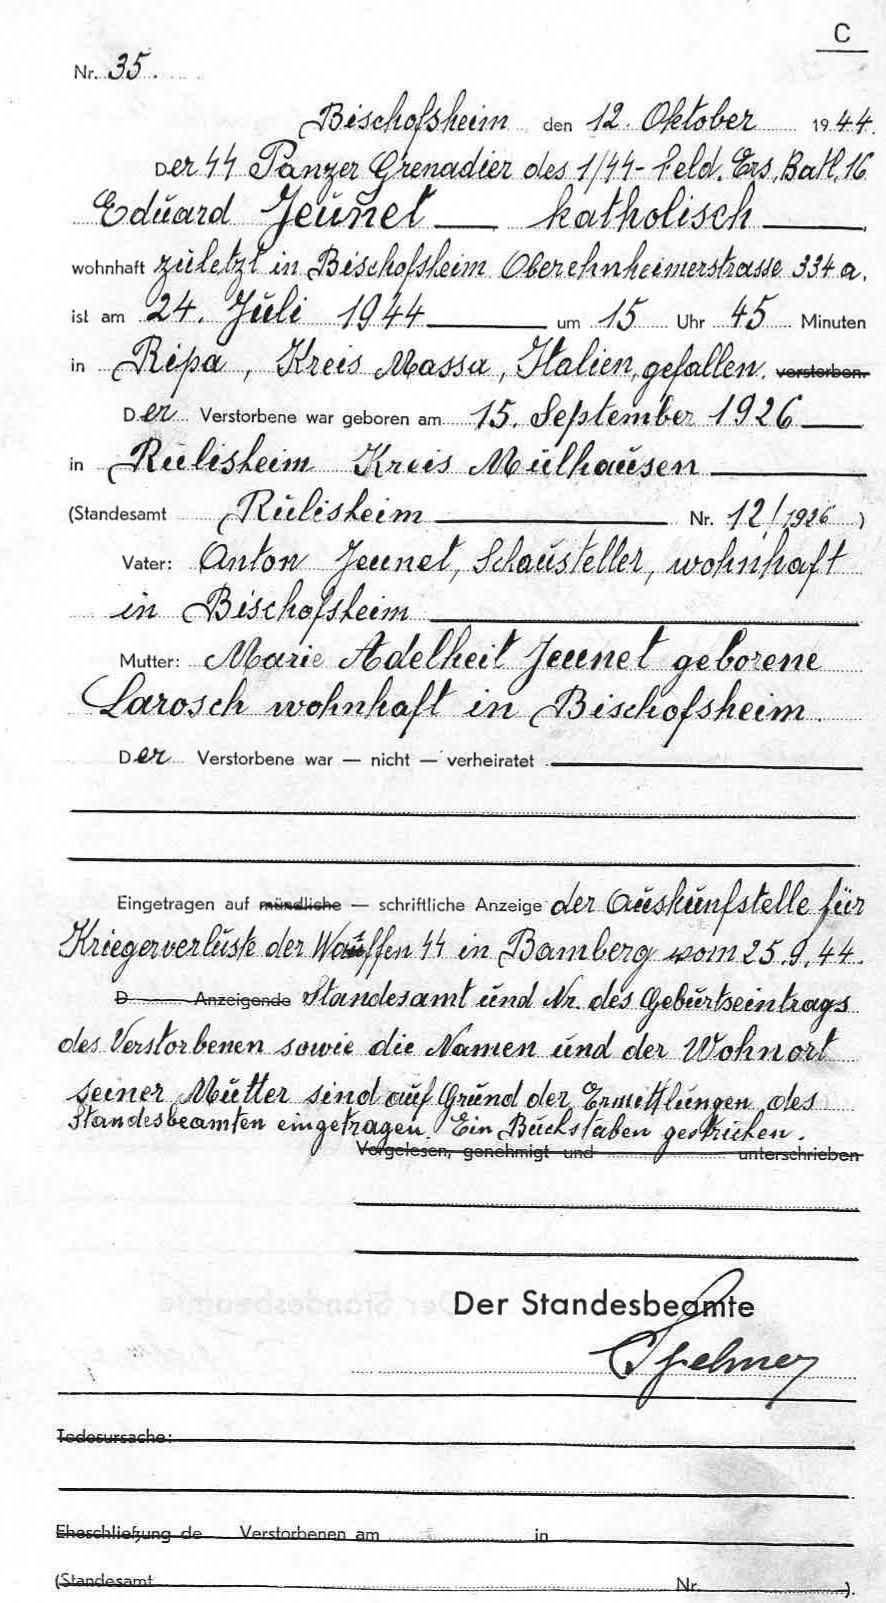 C
Nr. 35.
Bischofsheim den 12. Oktober 1944.
Der SS Panzer Grenadier des 1/SS-Feld. Ers. Batl. 16
Eduard Jeunet katholisch
wohnhaft zuletzt in Bischofsheim Oberehnheimerstrasse 334a.
ist am 24. Juli 1944 um 15 Uhr 45 Minuten
in Ripa, Kreis Massa, Italien, gefallen. verstorben.
Der Verstorbene war geboren am 15. September 1926
in Rülisheim Kreis Mülhausen
(Standesamt Rülisheim Nr. 12/1926)
Vater: Anton Jeunet, Schausteller, wohnhaft
in Bischofsheim
Mutter: Marie Adelheit Jeunet geborene
Larosch wohnhaft in Bischofsheim.
Der Verstorbene war — nicht — verheiratet
Eingetragen auf mündliche — schriftliche Anzeige der Auskunfstelle für
Kriegerverluste der Wauffen SS in Bamberg vom 25.9.44.
D Anzeigende Standesamt und Nr. des Geburtseintrags
des Verstorbenen sowie die Namen und der Wohnort
seiner Mutter sind auf Grund der Ermittlungen des
Standesbeamten eingetragen. Ein Buchstaben gestrichen.
Vorgelesen, genehmigt und unterschrieben
Der Standesbeamte
Todesursache:
Eheschließung de Verstorbenen am in
(Standesamt Nr. ).